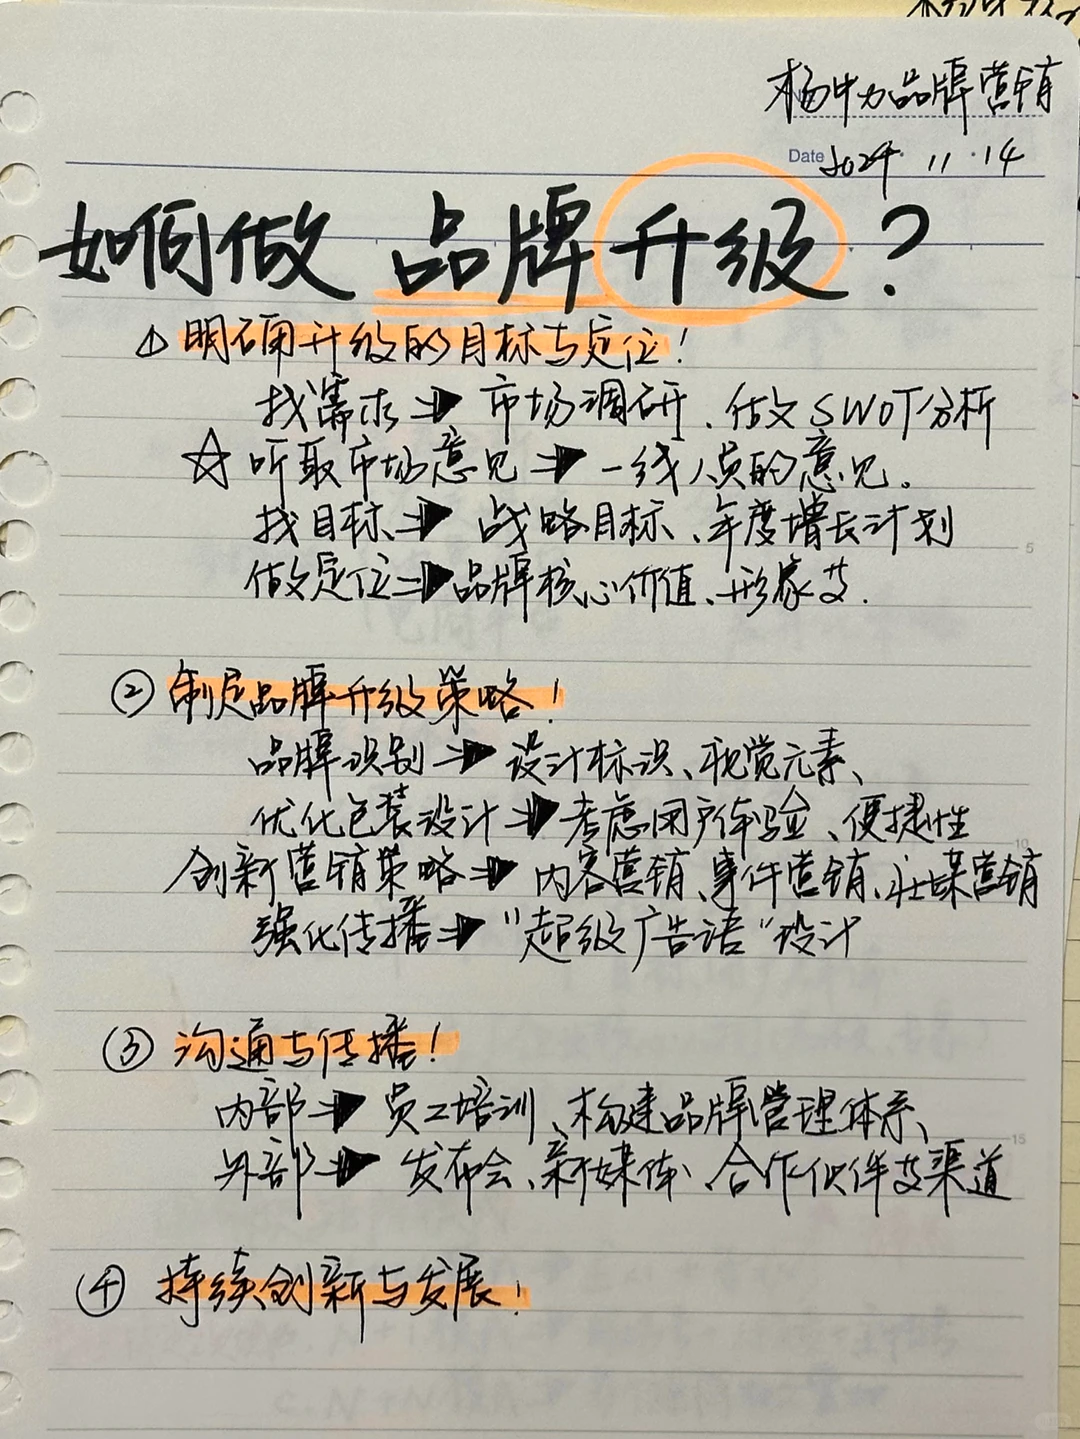 杨中力品牌营销
Date 2024.11.14
如何做品牌升级?
① 明确升级的目标与定位!
找需求→市场调研、做SWOT分析
☆ 听取市场意见→一线人员的意见。
找目标→战略目标、年度增长计划
做定位→品牌核心价值、形象等.
② 制定品牌升级策略!
品牌识别→设计标识、视觉元素、
优化包装设计→考虑用户体验、便捷性
创新营销策略→内容营销、事件营销、社媒营销
强化传播→"超级广告语"设计
③ 沟通与传播!
内部→员工培训、构建品牌管理体系、
外部→发布会、新媒体、合作伙伴等渠道
④ 持续创新与发展!
5
10
15